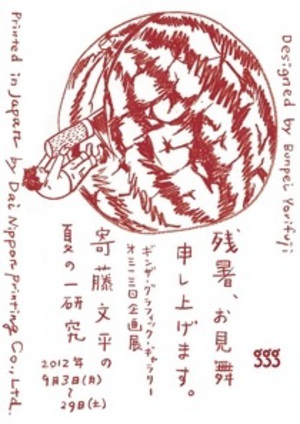 Designed by Bunpei Yorifuji
残暑、お見舞
申し上げます。
ggg
ギンザ・グラフィック・ギャラリー
オ三一三回企画展
寄藤文平の
夏の一研究
2012年
9月3日(月)
~
29日(土)
Printed in Japan by Dai Nippon Printing Co., Ltd.